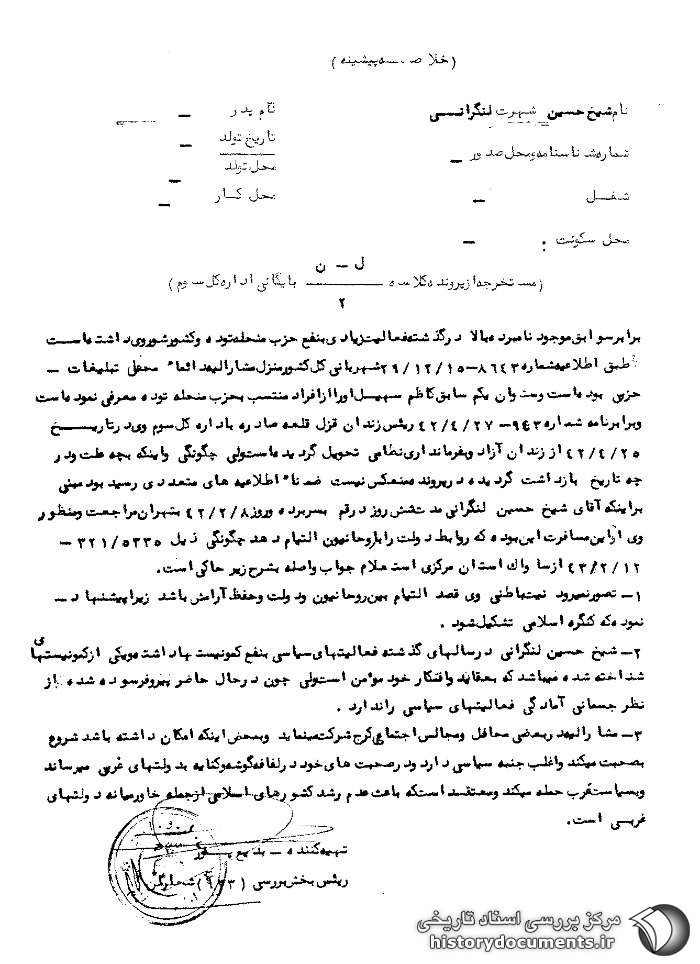 (خلاصه پیشینه)
نام شیخ حسین شهرت لنگرانی نام پدر –
تاریخ تولد –
شماره شناسنامه و محل صدور – محل تولد –
شغل – محل کار –
محل سکونت : –
(مستخرجه از پرونده کلاسه ل – ن / ۲ بایگانی اداره کل سوم)
برابر سوابق موجود نامبرده بالا در گذشته فعالیت زیادی بنفع حزب منحله توده و کشور شوروی داشته است
طبق اطلاعیه شماره ۸۶۴۳–۲۹/۱۲/۱۵ شهربانی کل کشور منزل مشارالیه دائماً محفل تبلیغات –
حزبی بوده است و ستوان یکم سابق کاظم سهیل اورا از افراد منتسب بحزب منحله توده معرفی نموده است
و برابر نامه شماره ۹۴۳–۴۲/۴/۲۷ رئیس زندان قزل قلعه صادره باداره کل سوم وی در تاریخ
۴۲/۴/۲۵ از زندان آزاد و بفرمانداری نظامی تحویل گردیده است ولی چگونگی و اینکه بچه علت و در
چه تاریخ بازداشت گردیده در پرونده منعکس نیست ضمناً اطلاعیه های متعددی رسیده بود مبنی
بر اینکه آقای شیخ حسین لنگرانی مدت شش روز در قم بسر برده و روز ۴۲/۲/۸ بتهران مراجعت و منظور
وی از این مسافرت این بوده که روابط دولت را با روحانیون التیام دهد چگونگی ذیل ۳۲۱/۵۳۳۵ –
۴۳/۲/۱۲ از ساواک استان مرکزی استعلام جواب واصله بشرح زیر حاکی است.
۱– تصور نمیرود نیت باطنی وی قصد التیام بین روحانیون و دولت و حفظ آرامش باشد زیرا پیشنهاد –
نموده که کنگره اسلامی تشکیل شود .
۲– شیخ حسین لنگرانی در سالهای گذشته فعالیتهای سیاسی بنفع کمونیستها داشته و یکی از کمونیستهای
شناخته شده میباشد که بعقاید و افکار خود مؤمن است ولی چون در حال حاضر پیر و فرسوده شده از
نظر جسمانی آمادگی فعالیتهای سیاسی را ندارد .
۳– مشارالیه در بعضی محافل و مجالس اجتماعی کرج شرکت مینماید و بمحض اینکه امکان داشته باشد شروع
بصحبت میکند و اغلب جنبه سیاسی دارد و در صحبت های خود در لفافه گوشه و کنایه بدولتهای غربی میرساند
و بسیاست غرب حمله میکند و معتقد است که باعث عدم رشد کشورهای اسلامی از جمله خاورمیانه دولتهای
غربی است.
تهیه کننده – بدیع پور
رئیس بخش بررسی (۳۳)
مرکز بررسی اسناد تاریخی
historydocuments.ir